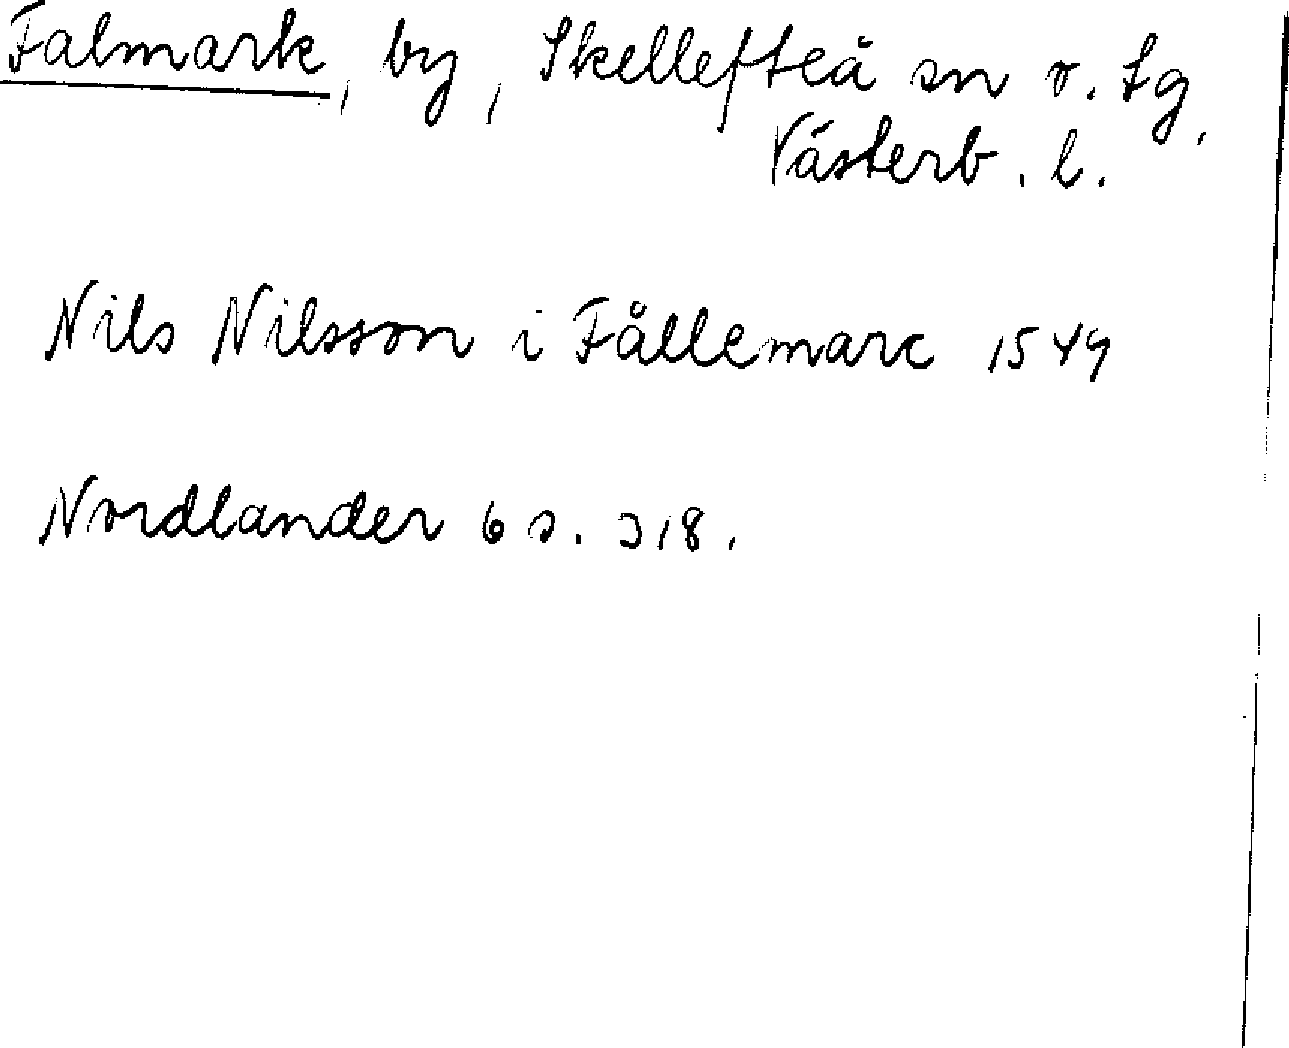 Falmark, by, Skellefteå sn o. tg,
Västerb. l.
Nils Nilsson i Fållemarc 1549
Nordlander 6 s. 318.